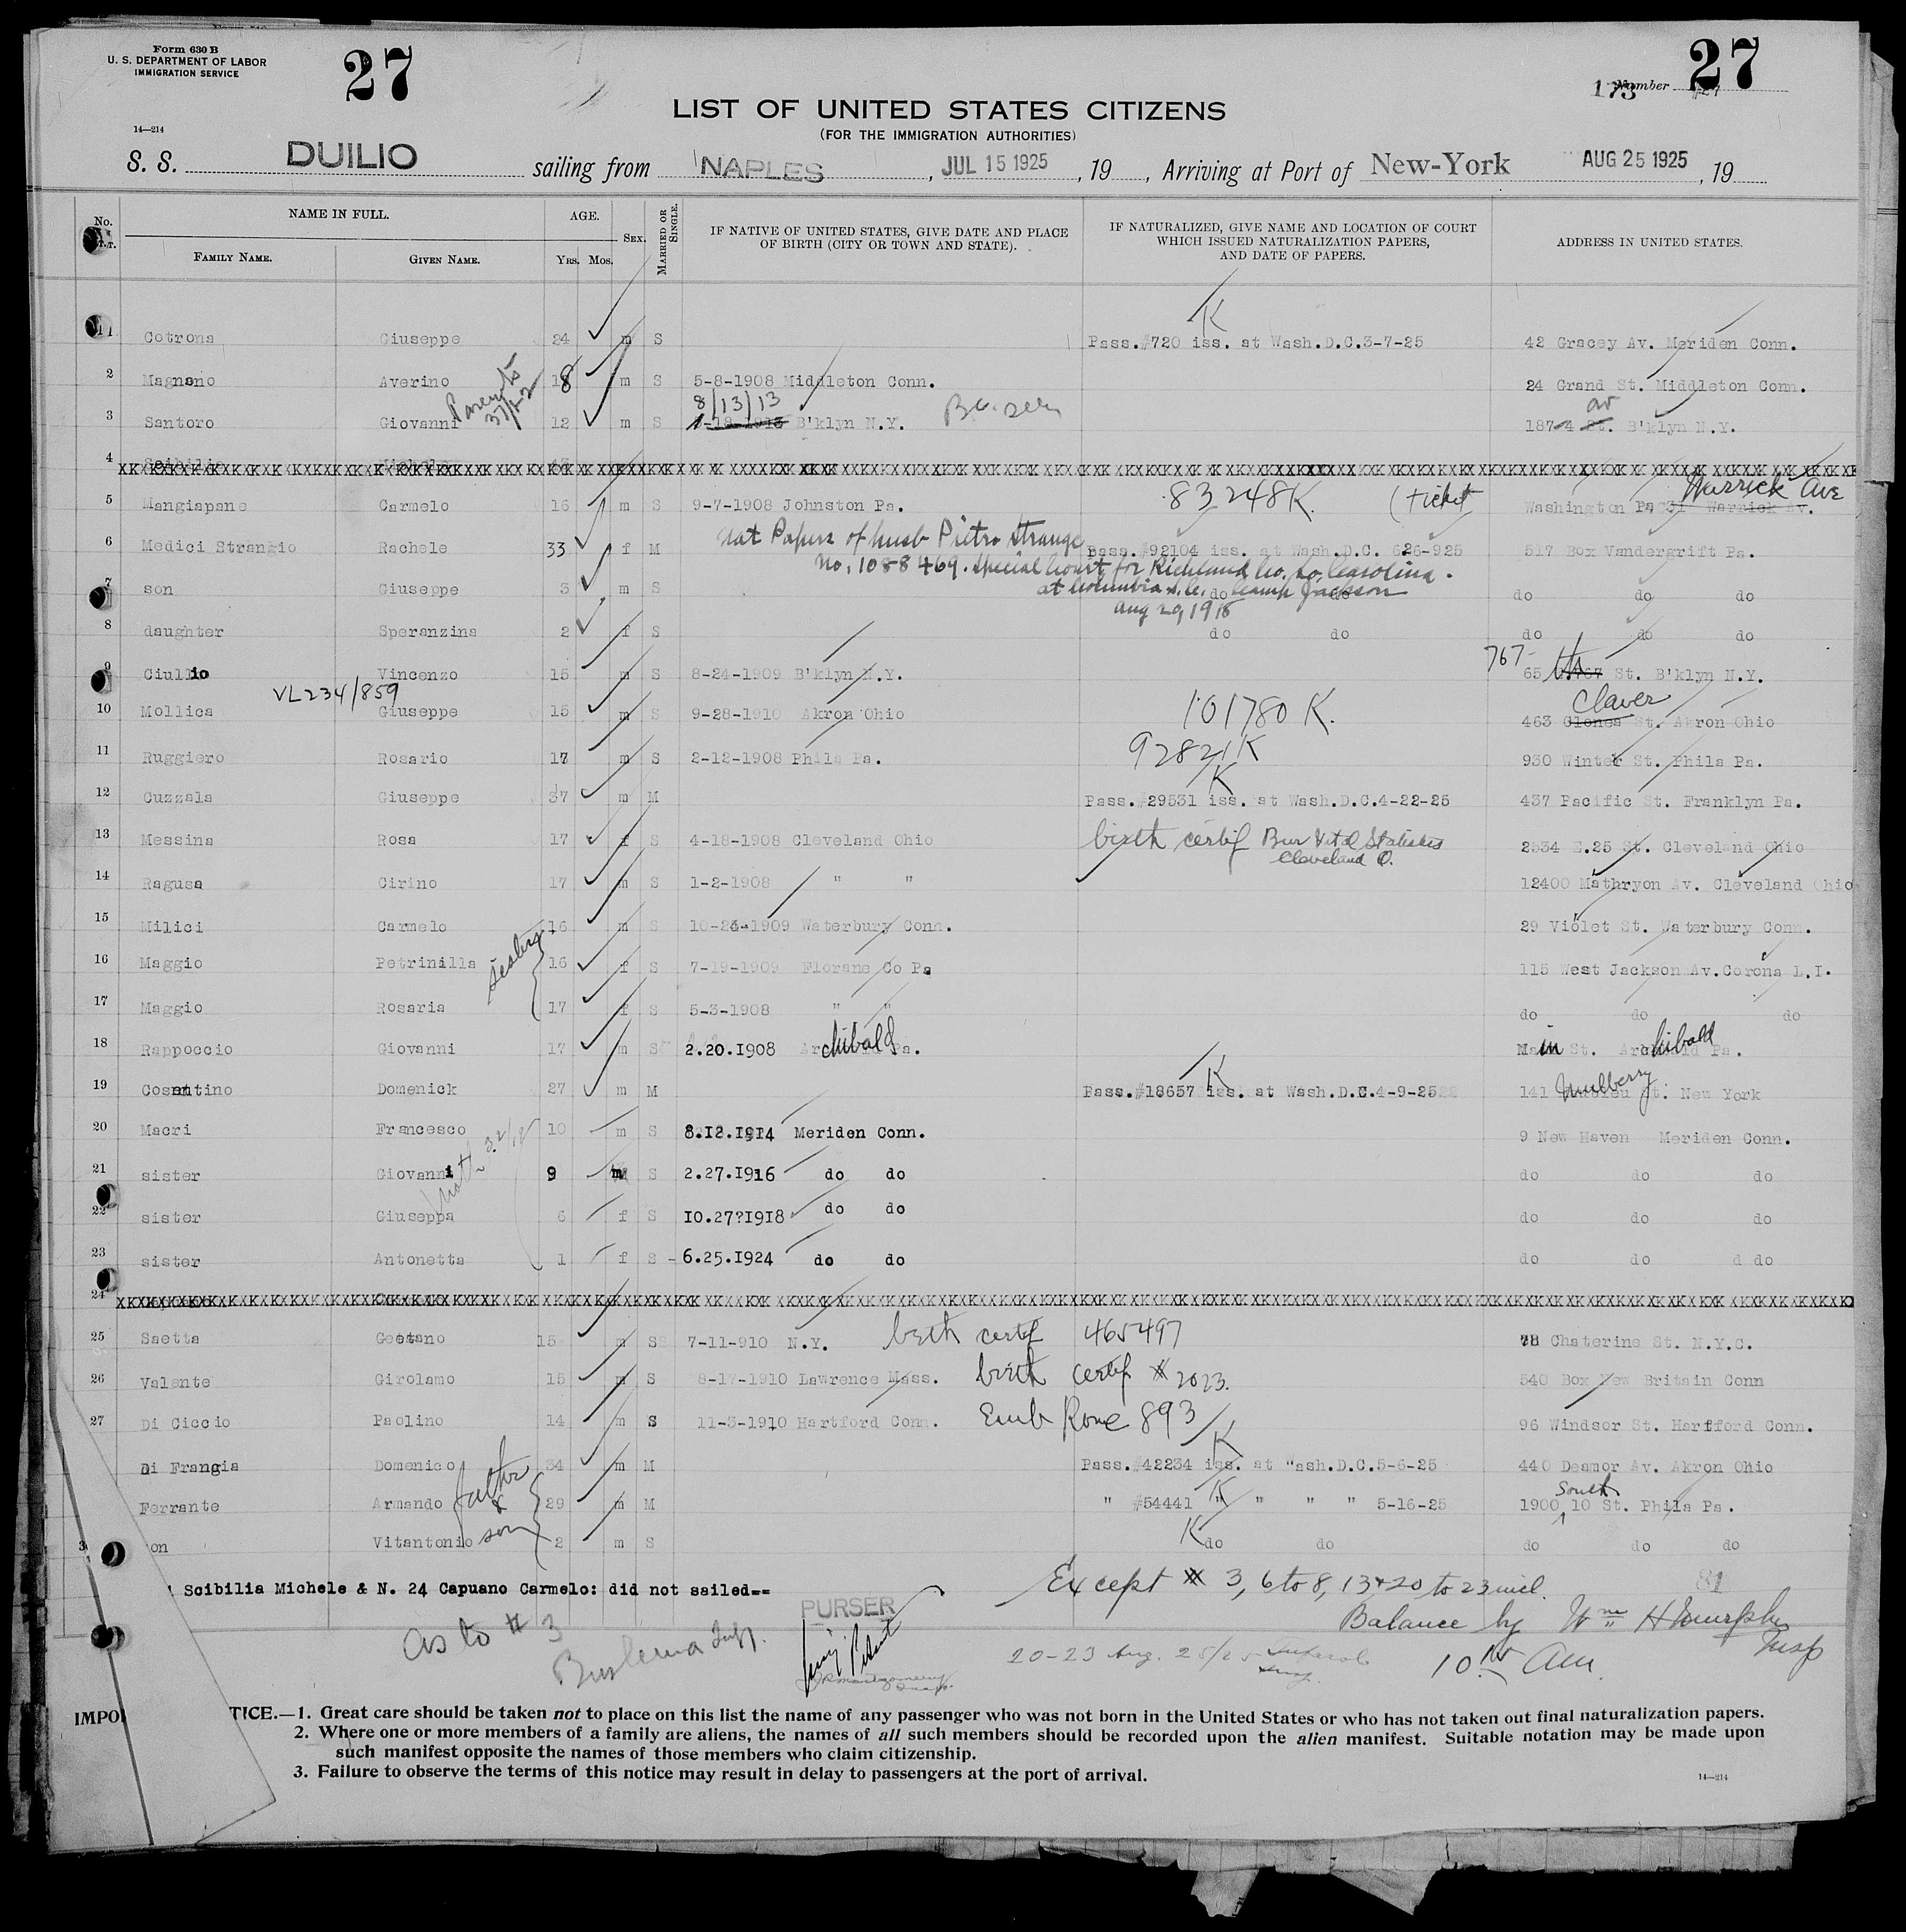 Form 630 B
U. S. DEPARTMENT OF LABOR
IMMIGRATION SERVICE
27
27
173 Number
14—214
LIST OF UNITED STATES CITIZENS
(FOR THE IMMIGRATION AUTHORITIES)
S. S. DUILIO sailing from NAPLES, JUL 15 1925, 19, Arriving at Port of New-York AUG 25 1925, 19
No. NAME IN FULL. AGE. SEX. MARRIED OR SINGLE. IF NATIVE OF UNITED STATES, GIVE DATE AND PLACE OF BIRTH (CITY OR TOWN AND STATE). IF NATURALIZED, GIVE NAME AND LOCATION OF COURT WHICH ISSUED NATURALIZATION PAPERS, AND DATE OF PAPERS. ADDRESS IN UNITED STATES.
FAMILY NAME. GIVEN NAME. YRS. MOS.
K
1 Cotrona Giuseppe 24 m S Pass.#720 iss. at Wash.D.C.3-7-25 42 Gracey Av. Meriden Conn.
2 Magnano Averino 18 m S 5-8-1908 Middleton Conn. 24 Grand St. Middleton Conn.
Parents 8/13/13 av
3 Santoro Giovanni 12 m S B'klyn N.Y. 187-4 St. B'klyn N.Y.
4 Scibilia Michele
83248K. (ticket Warrick Ave
5 Mangiapane Carmelo 16 m S 9-7-1908 Johnston Pa. Washington Pa. Warrick Av.
Nat Papers of husb Pietro Strange
6 Medici Strangio Rachele 33 f M Pass.#92104 iss. at Wash.D.C. 626-925 517 Box Vandergrift Pa.
No. 1088469. Special Court for Richland Co. So. Carolina.
7 son Giuseppe 3 m S at Columbia S.C. Camp Jackson do do do do do
Aug 29, 1918
8 daughter Speranzina 2 f S do do do do do
767- th
9 Ciullio Vincenzo 15 m S 8-24-1909 B'klyn N.Y. 65 St. B'klyn N.Y.
VL234/859 Claver
10 Mollica Giuseppe 15 m S 9-28-1910 Akron Ohio 101780 K. 463 St. Akron Ohio
92821K
11 Ruggiero Rosario 17 m S 2-12-1908 Phila Pa. 930 Winter St. Phila Pa.
K
12 Cuzzala Giuseppe 37 m M Pass.#29531 iss. at Wash.D.C.4-22-25 437 Pacific St. Franklyn Pa.
13 Messina Rosa 17 f S 4-18-1908 Cleveland Ohio birth certif Bur Vital Statistics Cleveland O. 2534 E.25 St. Cleveland Ohio
14 Ragusa Cirino 17 m S 1-2-1908 " " 12400 Mathryon Av. Cleveland Ohio
15 Milici Carmelo 16 m S 10-24-1909 Waterbury Conn. 29 Violet St. Waterbury Conn.
16 Maggio Petrinilla 16 f S 7-19-1909 Florane Co Pa 115 West Jackson Av.Corona L.I.
17 Maggio Rosaria 17 f S 5-3-1908 " " do do do
18 Rappoccio Giovanni 17 m S 2.20.1908 Archibald Pa. Main St. Archibald Pa.
K Mulberry
19 Cosentino Domenick 27 m M Pass.#18657 iss. at Wash.D.C.4-9-25 141 St. New York
20 Macri Francesco 10 m S 8.12.1914 Meriden Conn. 9 New Haven Meriden Conn.
21 sister Giovanni 9 m S 2.27.1916 do do do do do
22 sister Giuseppa 6 f S 10.27?1918 do do do do do
23 sister Antonetta 1 f S - 6.25.1924 do do do do d do
24
25 Saetta Gaetano 15 m S 7-11-910 N.Y. birth certif 465497 78 Chaterine St. N.Y.C.
26 Valente Girolamo 15 m S 8-17-1910 Lawrence Mass. birth certif # 2023. 540 Box New Britain Conn
27 Di Ciccio Paolino 14 m S 11-3-1910 Hartford Conn. Emb Rome 893 96 Windsor St. Hartford Conn.
K
Di Frangia Domenico 34 m M Pass.#42234 iss. at "ash.D.C.5-6-25 440 Deamor Av. Akron Ohio
father & son K South
Ferrante Armando 29 m M " #54441 " " " " 5-16-25 1900 10 St. Phila Pa.
on Vitantonio 2 m S K do do do do do
Scibilia Michele & N. 24 Capuano Carmelo: did not sailed--
Except # 3, 6 to 8, 13 & 20 to 23 incl. 81
PURSER
Balance by Wm H Murphy Insp
As to # 3
20-23 Aug. 25/25
10 15 AM.
IMPO TICE.—1. Great care should be taken not to place on this list the name of any passenger who was not born in the United States or who has not taken out final naturalization papers.
2. Where one or more members of a family are aliens, the names of all such members should be recorded upon the alien manifest. Suitable notation may be made upon
such manifest opposite the names of those members who claim citizenship.
3. Failure to observe the terms of this notice may result in delay to passengers at the port of arrival.
14—214